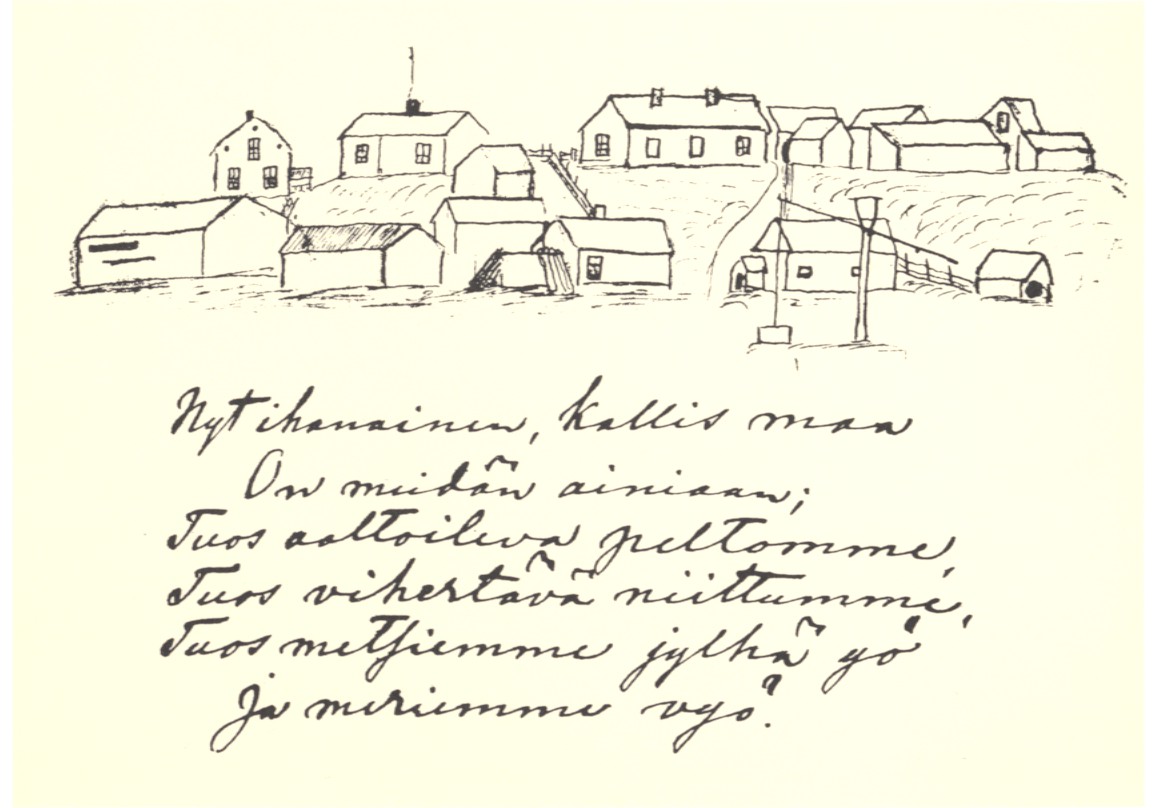 Nyt ihanainen, kallis maa
On meidän ainiaan;
Tuos aaltoileva peltomme,
Tuos vihertävä niittumme,
Tuos metsiemme jylhä yö
Ja meriemme vyö.